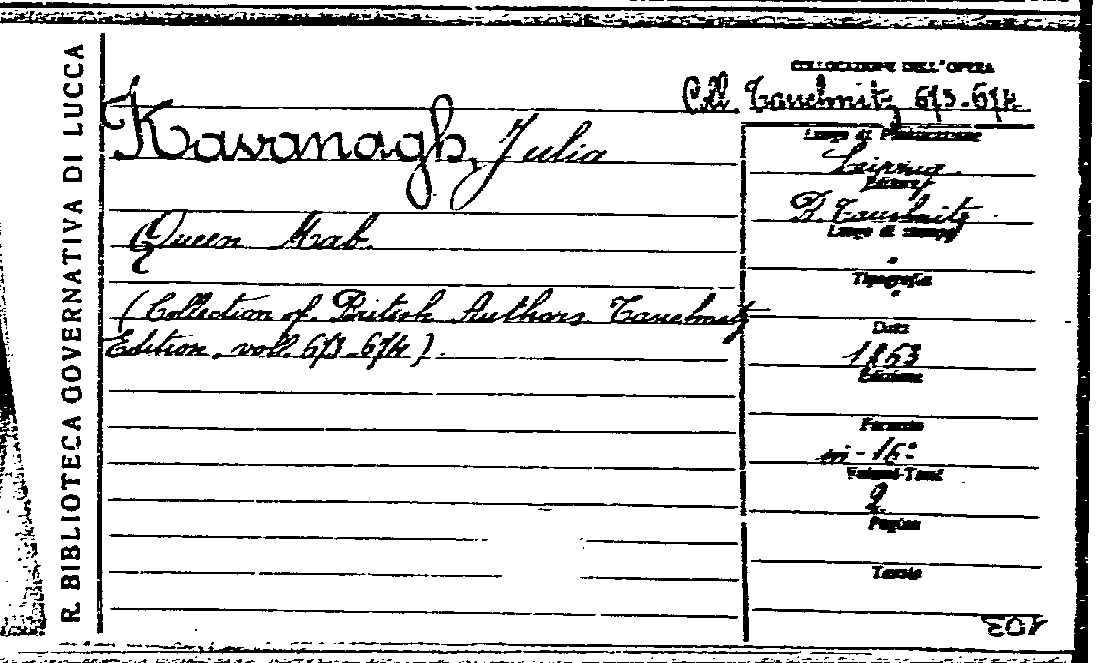 R. BIBLIOTECA GOVERNATIVA DI LUCCA
COLLOCAZIONE DELL'OPERA
Coll. Tauchnitz 673-674
Kavanagh, Julia
Queen Mab
(Collection of British Authors Tauchnitz
Edition, voll. 673-674).
Luogo di Pubblicazione
Leipzig.
Editore
B. Tauchnitz
Luogo di stampa
"
Tipografia
"
Data
1863
Edizione
Formato
in-16°
Volumi-Tomi
2
Pagine
Tavole
103